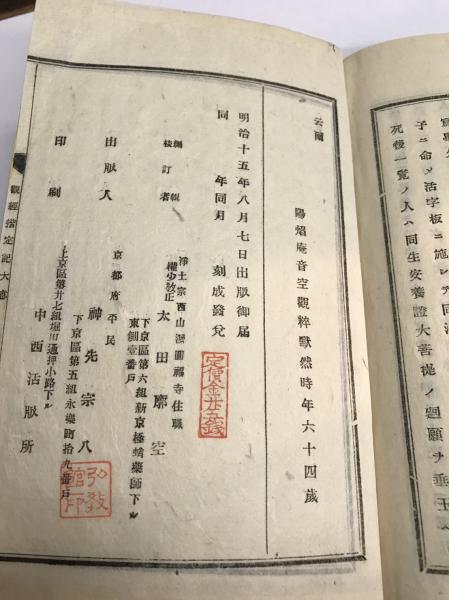 寫
子ニ命メ活字板ニ施シ
死後一覽ノ人ハ同生安養證大菩提ノ廻願ヲ垂玉ヘ
云爾
陽焰庵音空觀粹默然時年六十四歲
明治十五年八月七日出版御届
同 年同月 刻成發兌
編輯
校訂者
淨土宗西山派圓福寺住職
權少教正
太田廓空
下京區第六組新京極蛸藥師下ル
東側壹番戶
定價金廿五錢
出版人
京都府平民
神先宗八
下京區第五組永樂町拾九番戶
印刷
上京區第廿七組堀川通押小路下ル
中西活版所
弘教館印
觀經指定記大意